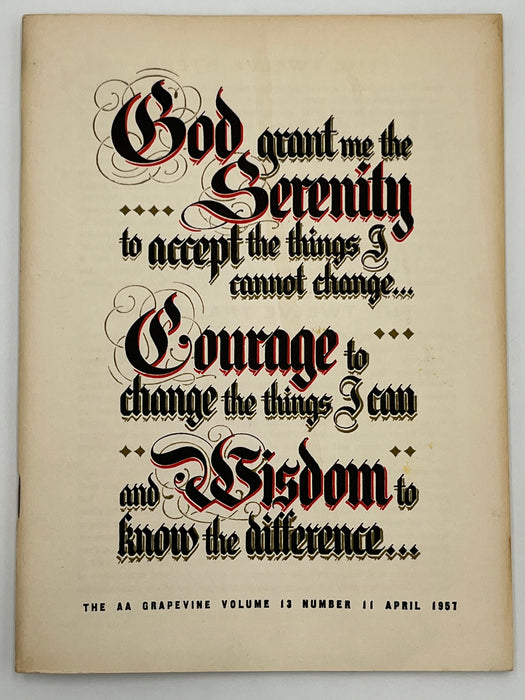 God grant me the
Serenity
to accept the things I
cannot change...
Courage to
change the things I can
and Wisdom to
know the difference...
THE AA GRAPEVINE VOLUME 13 NUMBER 11 APRIL 1957